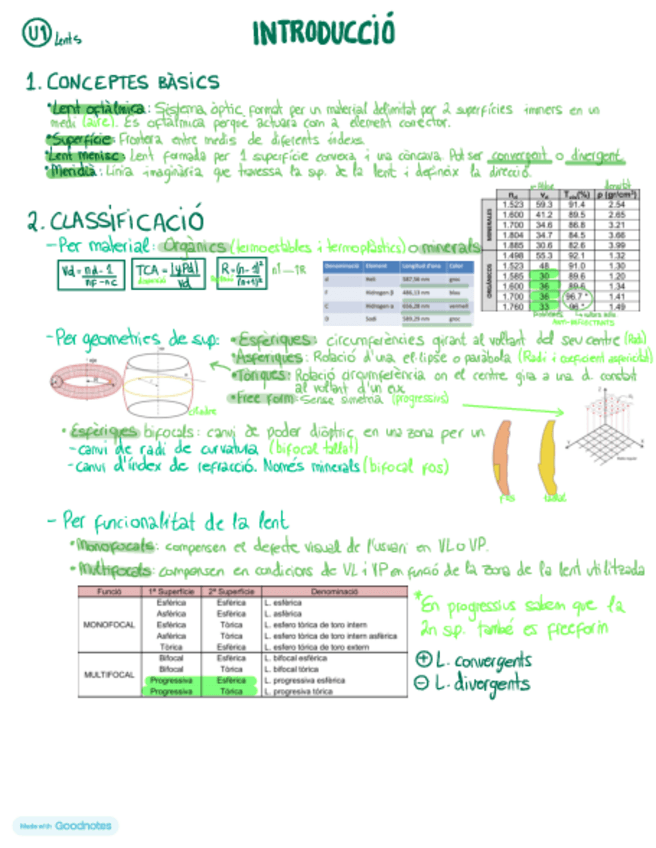 U1 Lents
INTRODUCCIÓ
1. CONCEPTES BÀSICS
• Lent oftàlmica: Sistema òptic format per un material delimitat per 2 superfícies immers en un
medi (aire). És oftàlmica perque actuara com a element corrector.
• Superfície: Frontera entre medis de diferents índexs.
• Lent menisc: Lent formada per 1 superfície convexa i una còncava. Pot ser convergent o divergent
• Meridià: Línia imaginària que travessa la sup. de la lent i defineix la direcció.
nd vd Tvis(%) ρ (gr/cm³)
MINERALES
1.523 59.3 91.4 2.54
1.600 41.2 89.5 2.65
1.700 34.6 86.8 3.21
1.804 34.7 84.5 3.66
1.885 30.6 82.6 3.99
ORGÁNICOS
1.498 55.3 92.1 1.32
1.523 48 91.0 1.30
1.585 30 89.6 1.20
1.600 36 89.6 1.34
1.700 36 96.7 * 1.41
1.760 33 96 * 1.49
ANTI-REFLECTANTS
2. CLASSIFICACIÓ
- Per material: Orgànics (termoestables i termoplàstics) o minerals
Vd = nd - 1 / nF - nC
TCA = |yPd| / Vd
R = (n - 1)² / (n + 1)²
Denominació Element Longitud d'ona Color
d Heli 587,56 nm groc
F Hidrogen β 486,13 nm blau
C Hidrogen α 656,28 nm vermell
D Sodi 589,29 nm groc
- Per geometries de sup: • Esfèriques: circumferències girant al voltant del seu centre (Radi)
• Asfèriques: Rotació d'una el·lipse o paràbola (Radi i coeficient asfericidad)
• Tòriques: Rotació circumferència on el centre gira a una d. constat
al voltant d'un eix
• Free form: Sense simetria (progressius)
• Esfèriques bifocals: canvi de poder diòptric en una zona per un
- canvi de radi de curvatura (bifocal tallat)
- canvi d'índex de refracció. Només minerals (bifocal fos)
fos tallat
- Per funcionalitat de la lent
• Monofocals: compensen el defecte visual de l'usuari en VL o VP.
• Multifocals: compensen en condicions de VL i VP en funció de la zona de la lent utilitzada
Funció 1ª Superfície 2ª Superfície Denominació
MONOFOCAL
Esfèrica Esfèrica L. esfèrica
Asfèrica Esfèrica L. asfèrica
Esfèrica Tòrica L. esfero tòrica de toro intern
Asfèrica Tòrica L. esfero tòrica de toro intern asfèrica
Tòrica Esfèrica L. esfero tòrica de toro extern
MULTIFOCAL
Bifocal Esfèrica L. bifocal esfèrica
Bifocal Tòrica L. bifocal tòrica
Progressiva Esfèrica L. progressiva esfèrica
Progressiva Tòrica L. progresiva tòrica
* En progressius sabem que la
2n sp. també es freeform
+ L. convergents
- L. divergents
Made with Goodnotes